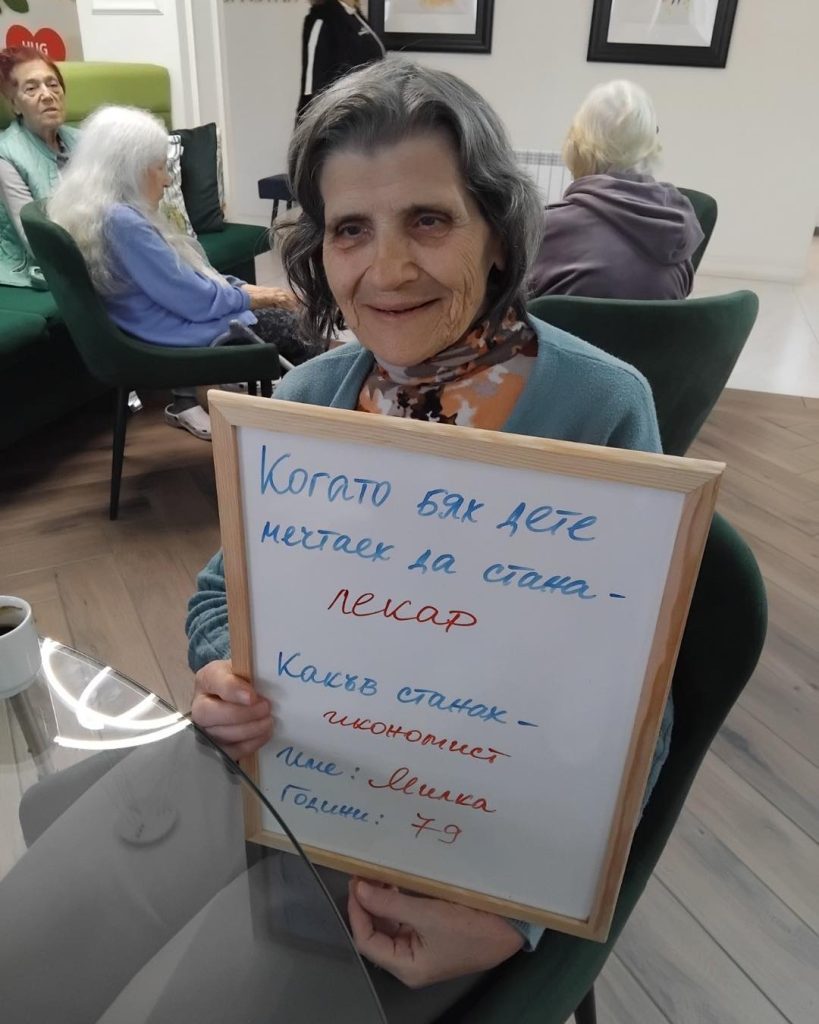 HUG
Когато бях дете
мечтаех да стана -
лекар
Какъв станах -
икономист
Име: Милка
Години: 79